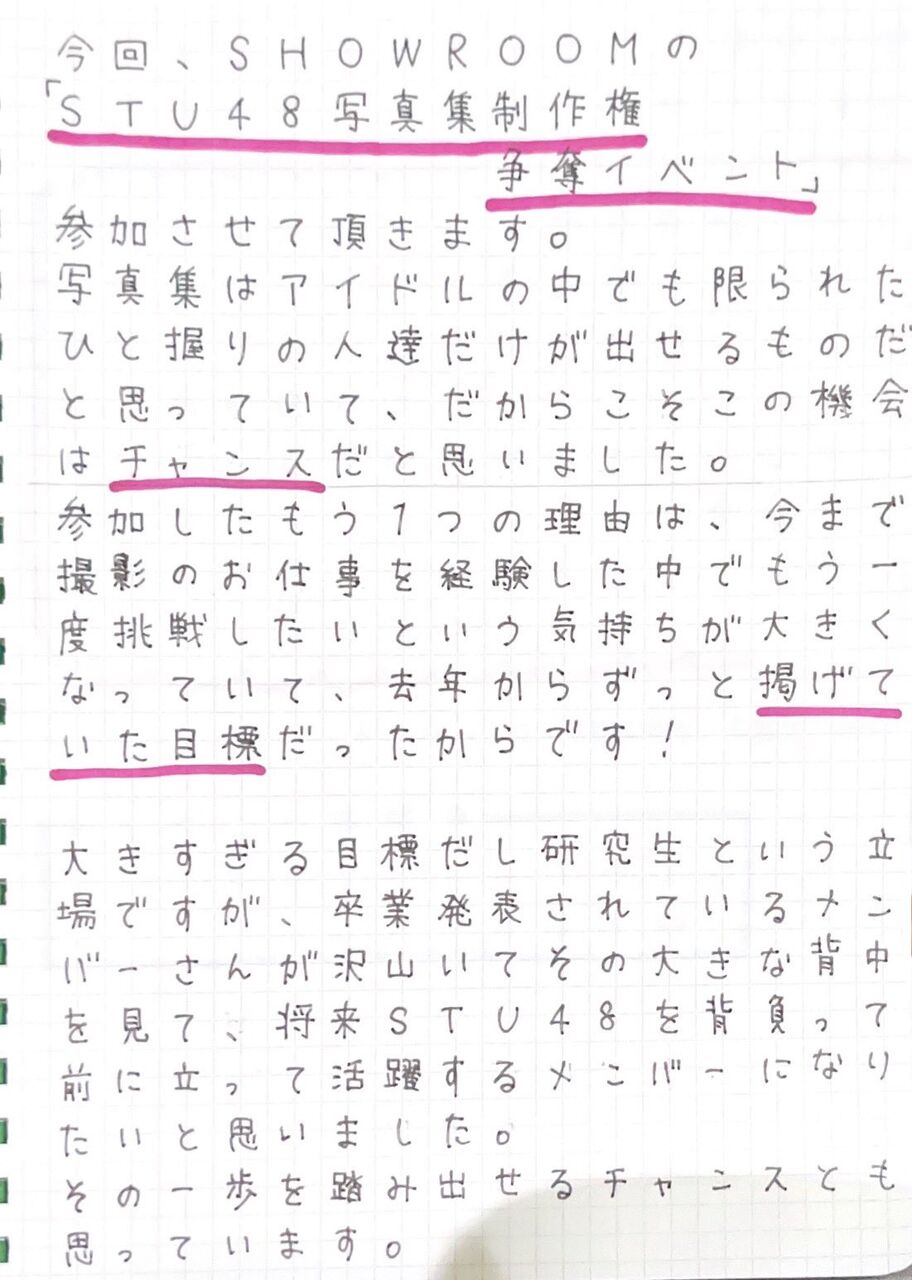 今回、SHOWROOMの
「STU48写真集制作権
争奪イベント」
参加させて頂きます。
写真集はアイドルの中でも限られた
ひと握りの人達だけが出せるものだ
と思っていて、だからこそこの機会
はチャンスだと思いました。
参加したもう1つの理由は、今まで
撮影のお仕事を経験した中でもう一
度挑戦したいという気持ちが大きく
なっていて、去年からずっと掲げて
いた目標だったからです!
大きすぎる目標だし研究生という立
場ですが、卒業発表されているメン
バーさんが沢山いてその大きな背中
を見て、将来STU48を背負って
前に立って活躍するメンバーになり
たいと思いました。
その一歩を踏み出せるチャンスとも
思っています。